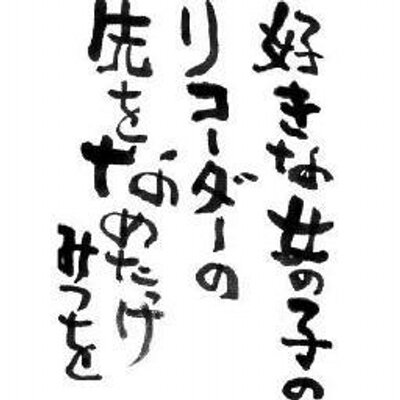 好きな女の子の
リコーダーの
先を
なめたっけ
みつを